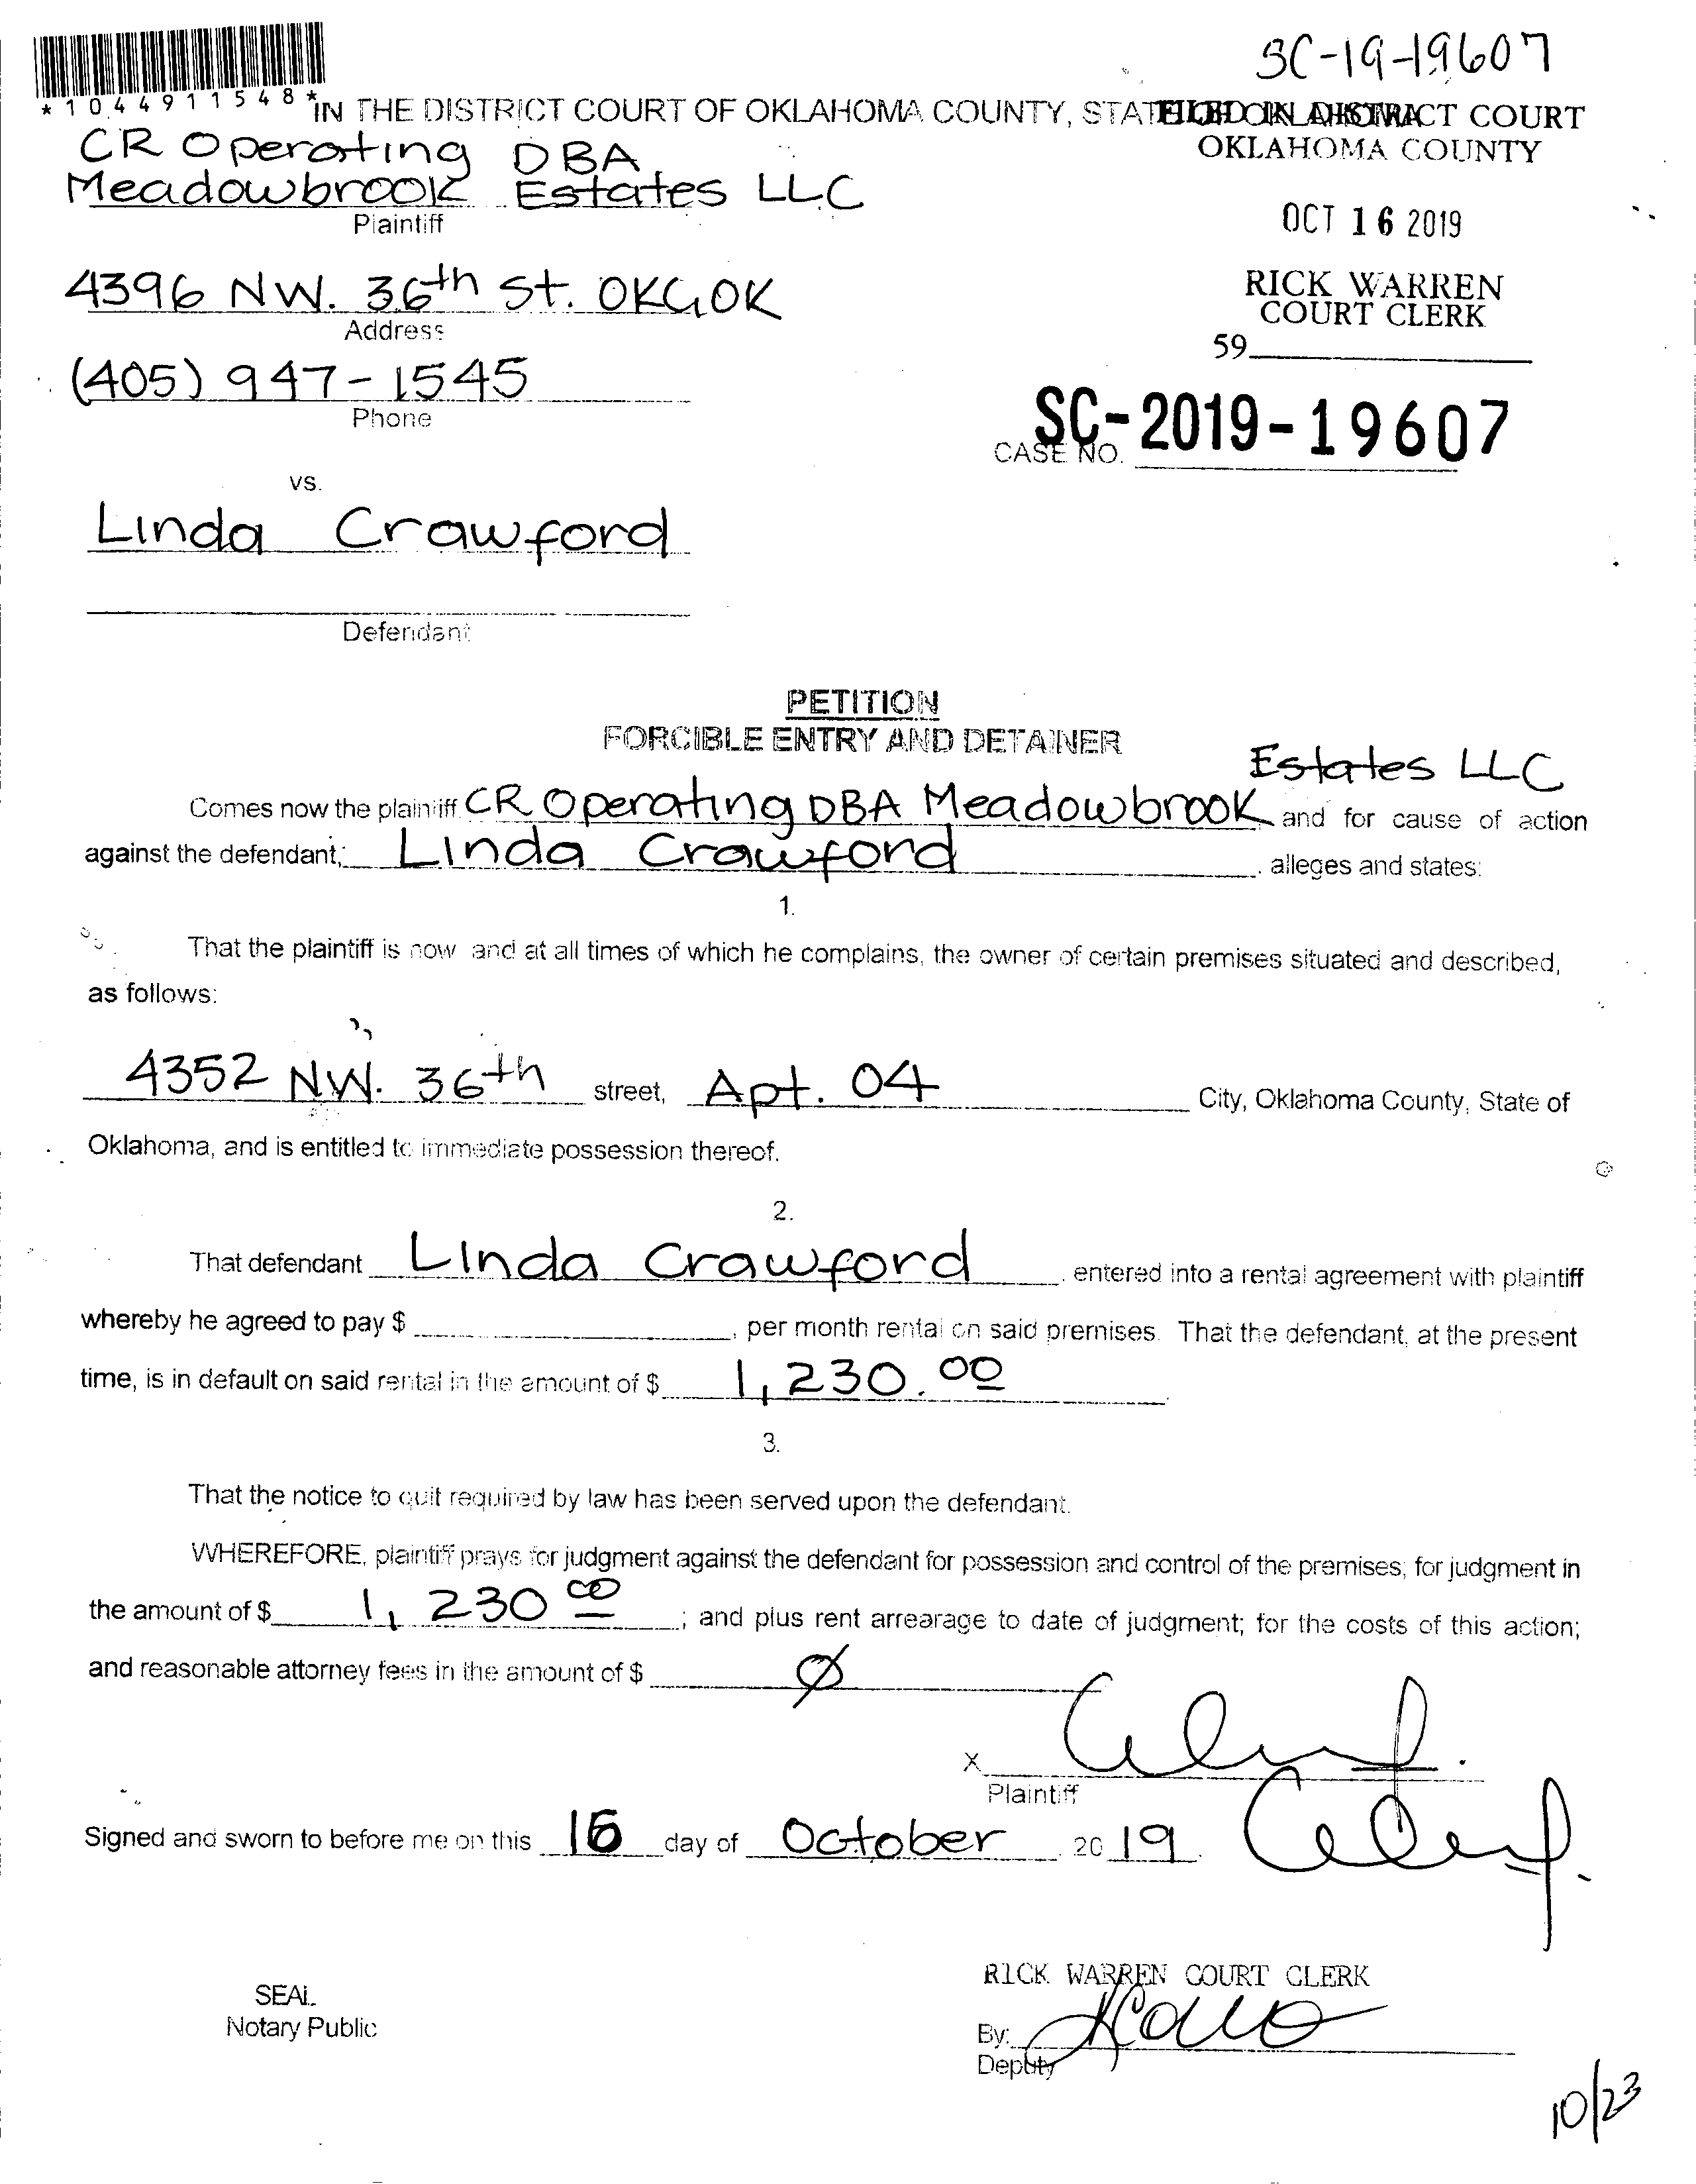 SC-19-19607
*1044911548*
IN THE DISTRICT COURT OF OKLAHOMA COUNTY, STATE OF OKLAHOMA
FILED IN DISTRICT COURT
OKLAHOMA COUNTY
CR Operating DBA
Meadowbrook Estates LLC
Plaintiff
OCT 16 2019
4396 NW. 36th St. OKC, OK
Address
RICK WARREN
COURT CLERK
59
(405) 947-1545
Phone
SC-2019-19607
CASE NO.
vs.
Linda Crawford
Defendant
PETITION
FORCIBLE ENTRY AND DETAINER
Estates LLC
Comes now the plaintiff CR Operating DBA Meadowbrook and for cause of action
against the defendant, Linda Crawford, alleges and states:
1.
That the plaintiff is now and at all times of which he complains, the owner of certain premises situated and described,
as follows:
4352 NW. 36th street, Apt. 04 City, Oklahoma County, State of
Oklahoma, and is entitled to immediate possession thereof.
2.
That defendant Linda Crawford, entered into a rental agreement with plaintiff
whereby he agreed to pay $ , per month rental on said premises. That the defendant, at the present
time, is in default on said rental in the amount of $ 1,230.00
3.
That the notice to quit required by law has been served upon the defendant.
WHEREFORE, plaintiff prays for judgment against the defendant for possession and control of the premises; for judgment in
the amount of $ 1,230 00; and plus rent arrearage to date of judgment; for the costs of this action;
and reasonable attorney fees in the amount of $ Ø
X
Plaintiff
Signed and sworn to before me on this 16 day of October, 2019.
RICK WARREN COURT CLERK
SEAL
Notary Public
By:
Deputy
10/23